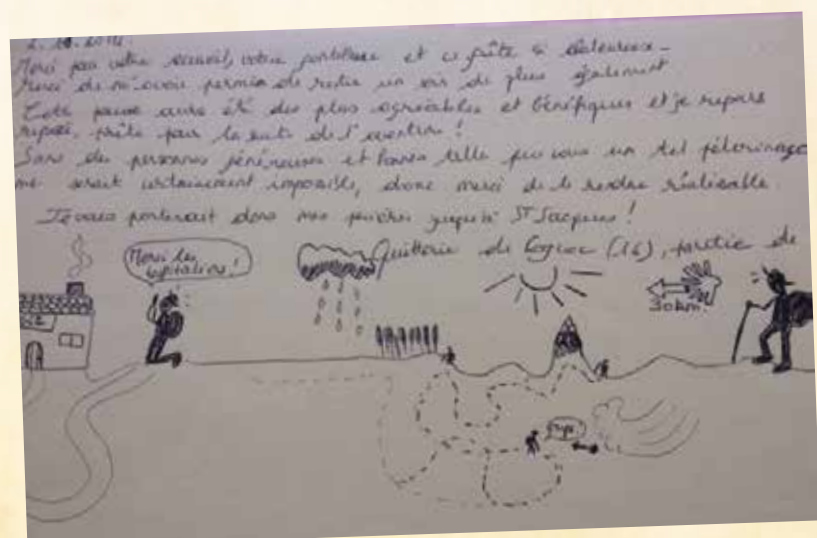 Merci pour votre accueil, votre gentillesse et ce gîte si chaleureux.
Merci de m'avoir permis de rester un soir de plus également
Cette pause aura été des plus agréables et bénéfiques et je repars
reposée, prête pour la suite de l'aventure !
Sans des personnes généreuses et bonnes telle que vous un tel pèlerinage
me serait certainement impossible, donc merci de le rendre réalisable.
Je vous porterait dans mes prières jusqu'à St Jacques !
Quitterie de Cognac (16), partie de
Merci les hospitaliers !
30 km
oups